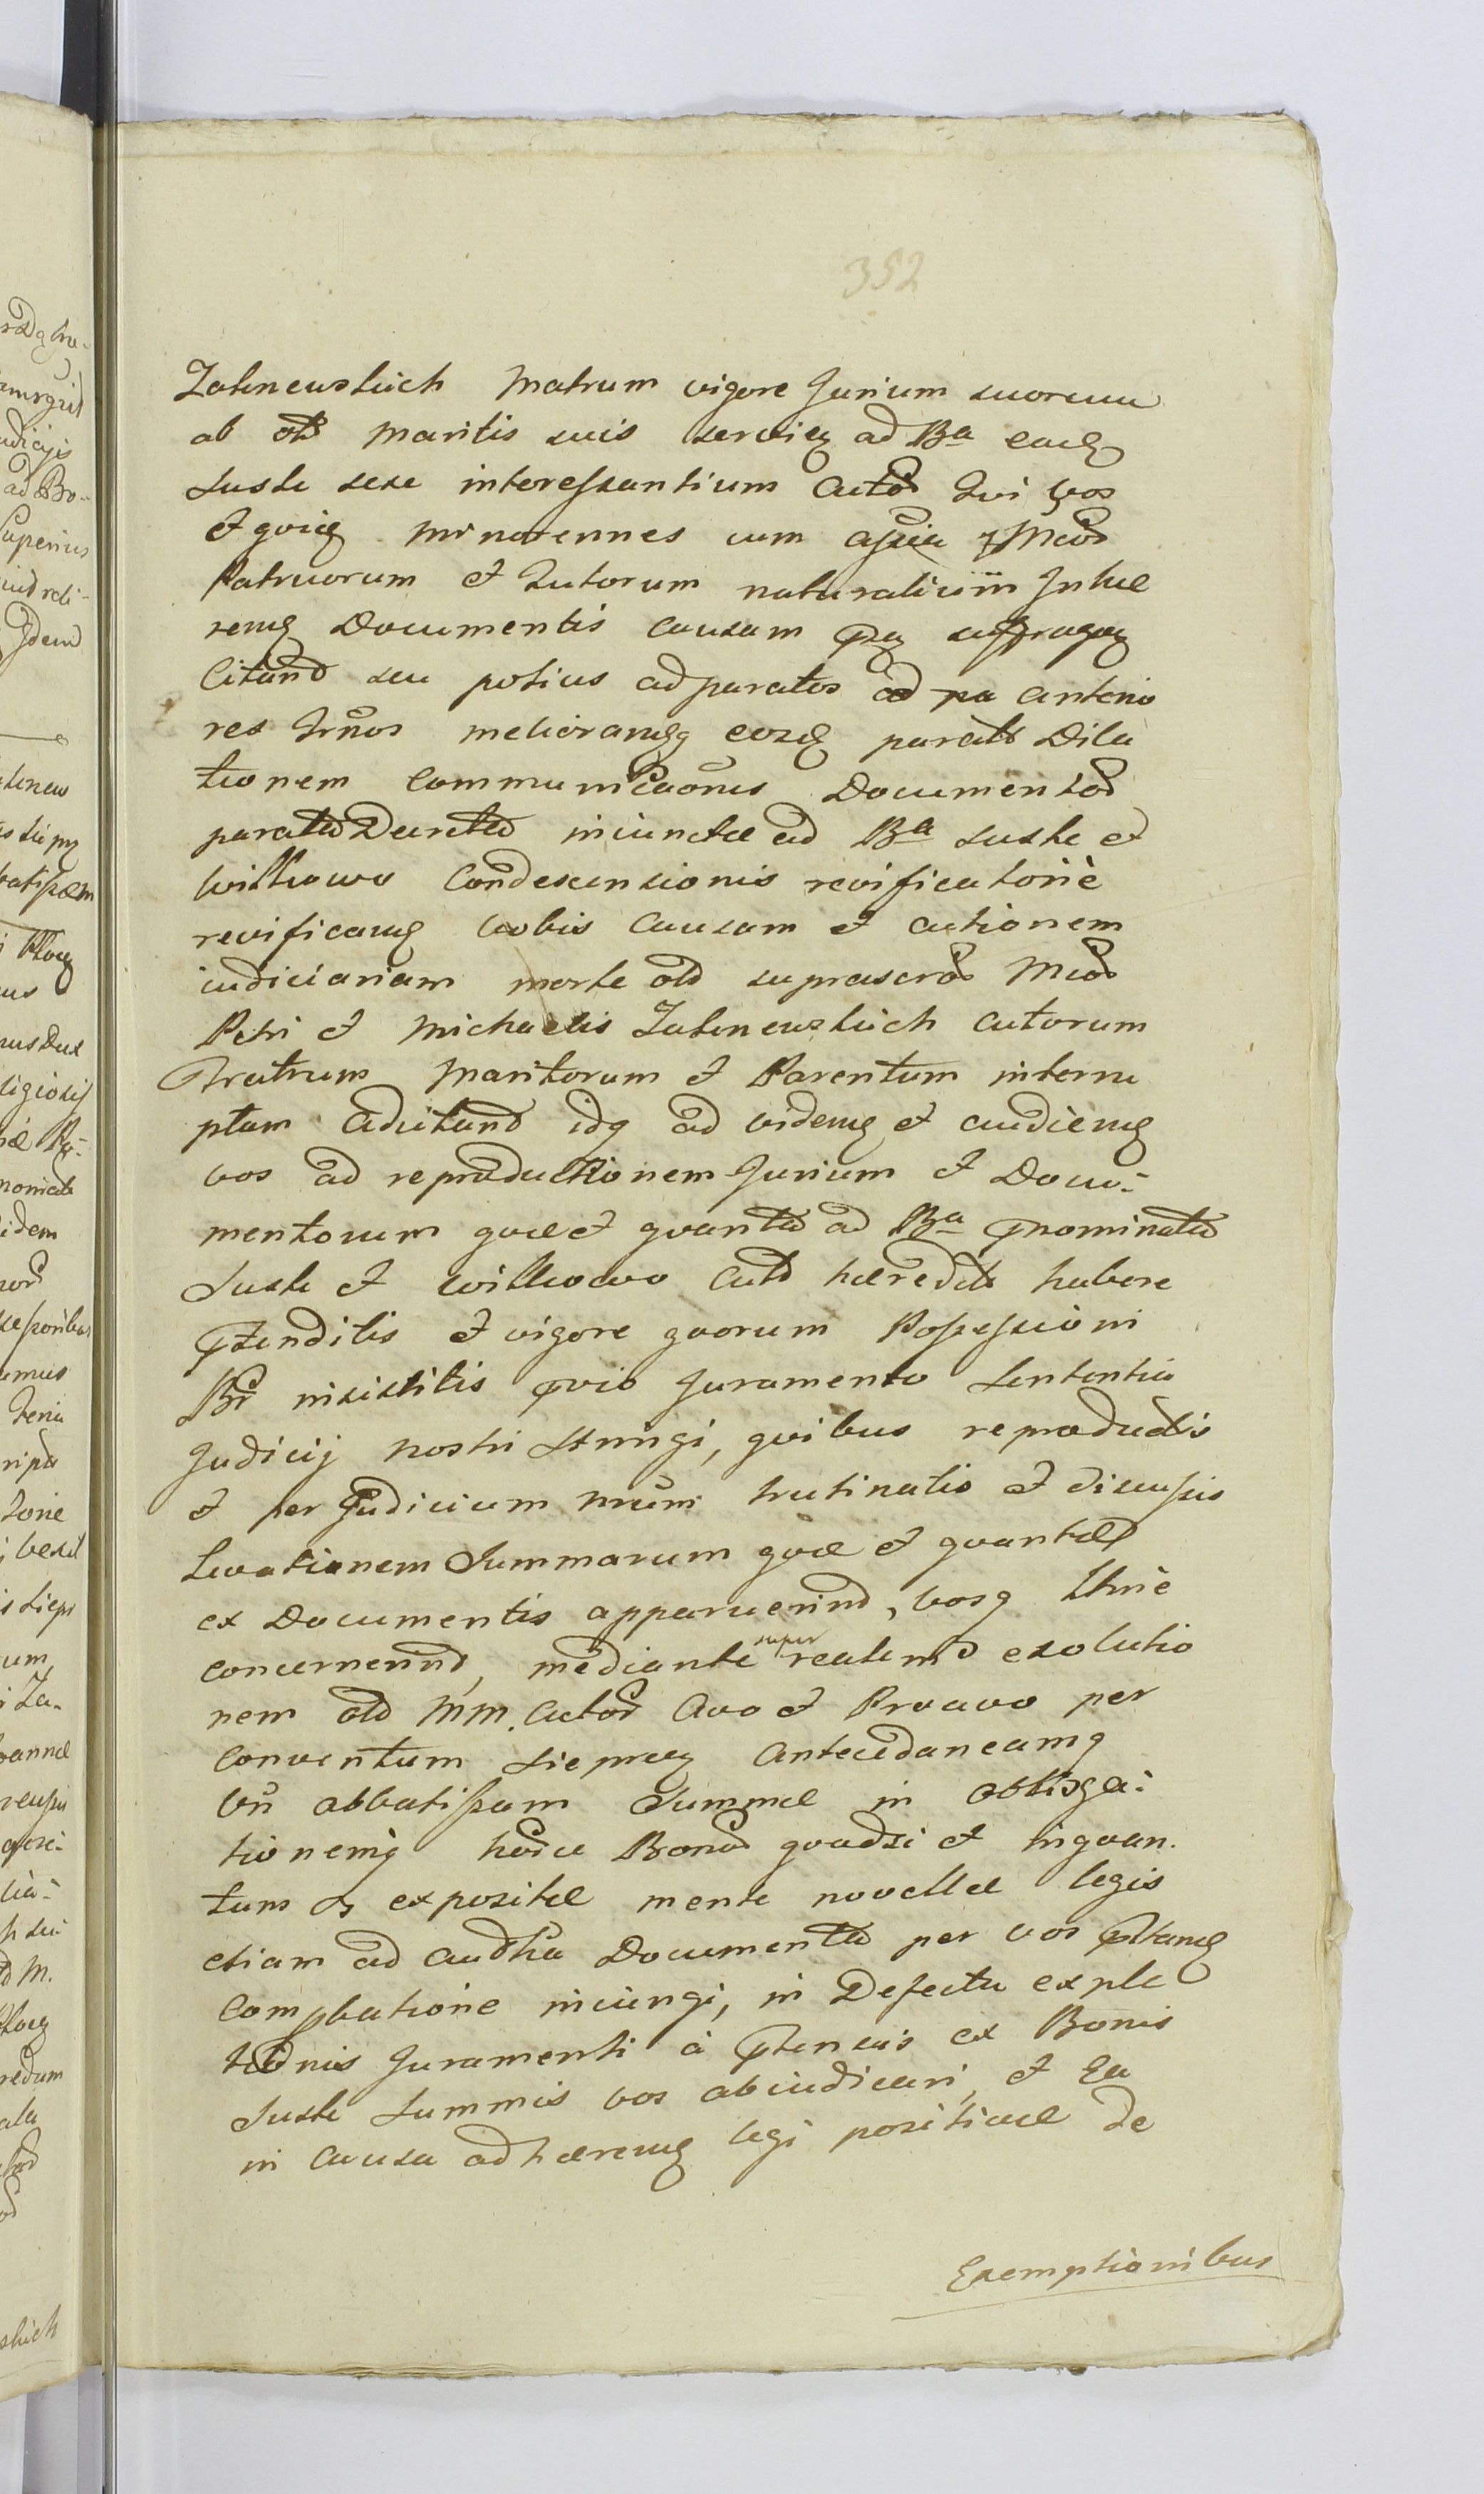 352
Zaleneuskich Matrum vigore Jurium suorum
ab olt Maritis suis servien ad Ba eadq
Suske sese interessantium Actor Qui vos
et qvieq Minorennes cum assia Mcor
Patruorum et Tutorum naturalium Inhae
reng Documentis causam suffragaq
Citand seu potius ad paratos ad anterio
res Trnos meliorang eosq parats Dila
tionem Communicaonis Documentor
parata Decreta iniunctae ad Ba Suske et
Witkowo Condescensionis revificatorie
revificang vobis Causam et actionem
iudiciariam morte old suprascror Mcor
Petri et Michaelis Zaleneuskich Actorum
Fratrum Maritorum et Parentum interru
ptam Adcitand idq ad videng et audieng
vos ad reproductionem Jurium et Docu-
mentorum qvae et qvanta ad Ba pnominata
Suske et Witkowo Actd haeredit habere
ptenditis et vigore qvorum Possessioni
Br insistitis pvio Juramento Sententia
Judicij nostri stringi, qvibus reproductis
et per Judicium nrum trutinatis et discussis
Levationem Summarum qvae et qvantae
ex Documentis apparuerind, vosq
concernerind, mediante super realem exolutio
nem old MM. Actor Avo et Proavo per
Conventum Siepracz Antecedaneamq
Vn abbatissam Summae in obliga-
tionemq horce Bonor qvadsi et inqvan
tum expositae mente novellae legis
etiam ad audhia Documenta per vos ptanq
Comp̄batione iniungi, in Defectu exple
tionis Juramenti à ptensis ex Bonis
Suske Summis vos abiudicari, et Ea
in Causa adhaereng legi positivae de
Exemptionibus